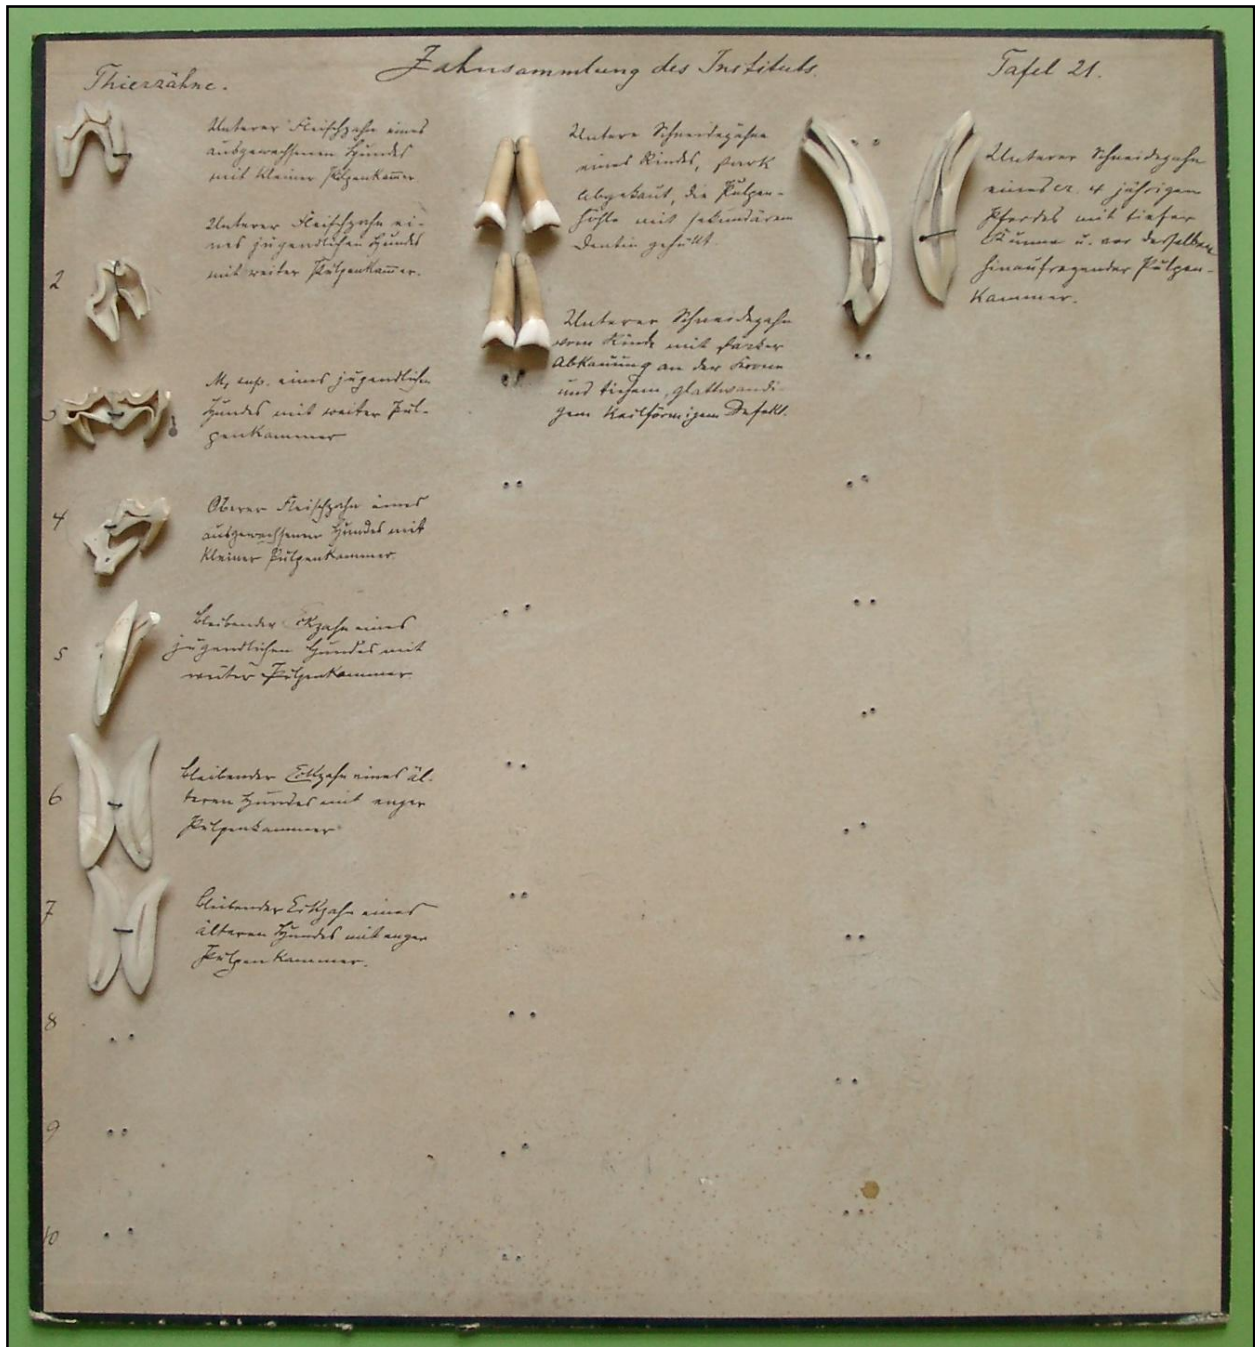 Thierzähne.
Zahnsammlung des Instituts.
Tafel 21.
Unterer Fleischzahn eines
ausgewachsenen Hundes
mit kleiner Pulpenkam̄er
Unterer Fleischzahn ei-
nes jugendlichen Hundes
mit weiter Pulpenkam̄er.
2
3
M, eines jugendlichen
Hundes mit weiter Pul-
penkammer
4
Oberer Fleischzahn eines
ausgewachsenen Hundes mit
kleiner Pulpenkammer.
5
bleibender Eckzahn eines
jugendlichen Hundes mit
weiter Pulpenkammer
6
bleibender Eckzahn eines äl-
teren Hundes mit enger
Pulpenkammer
7
bleibender Eckzahn eines
älteren Hundes mit enger
Pulpenkammer.
8
9
10
Untere Schneidezähne
eines Rindes, stark
abgekaut, die Pulpen-
höhle mit sekundärem
Dentin gefüllt.
Unterer Schneidezahn
vom Rinde mit starker
Abkauung an der Krone
und tiefem, glattwandi-
gem keilförmigem Defekt.
Unterer Schneidezahn
eines cr. 4 jährigen
Pferdes mit tiefer
Kunne u. vor derselben
hinaufragender Pulpen-
kammer.